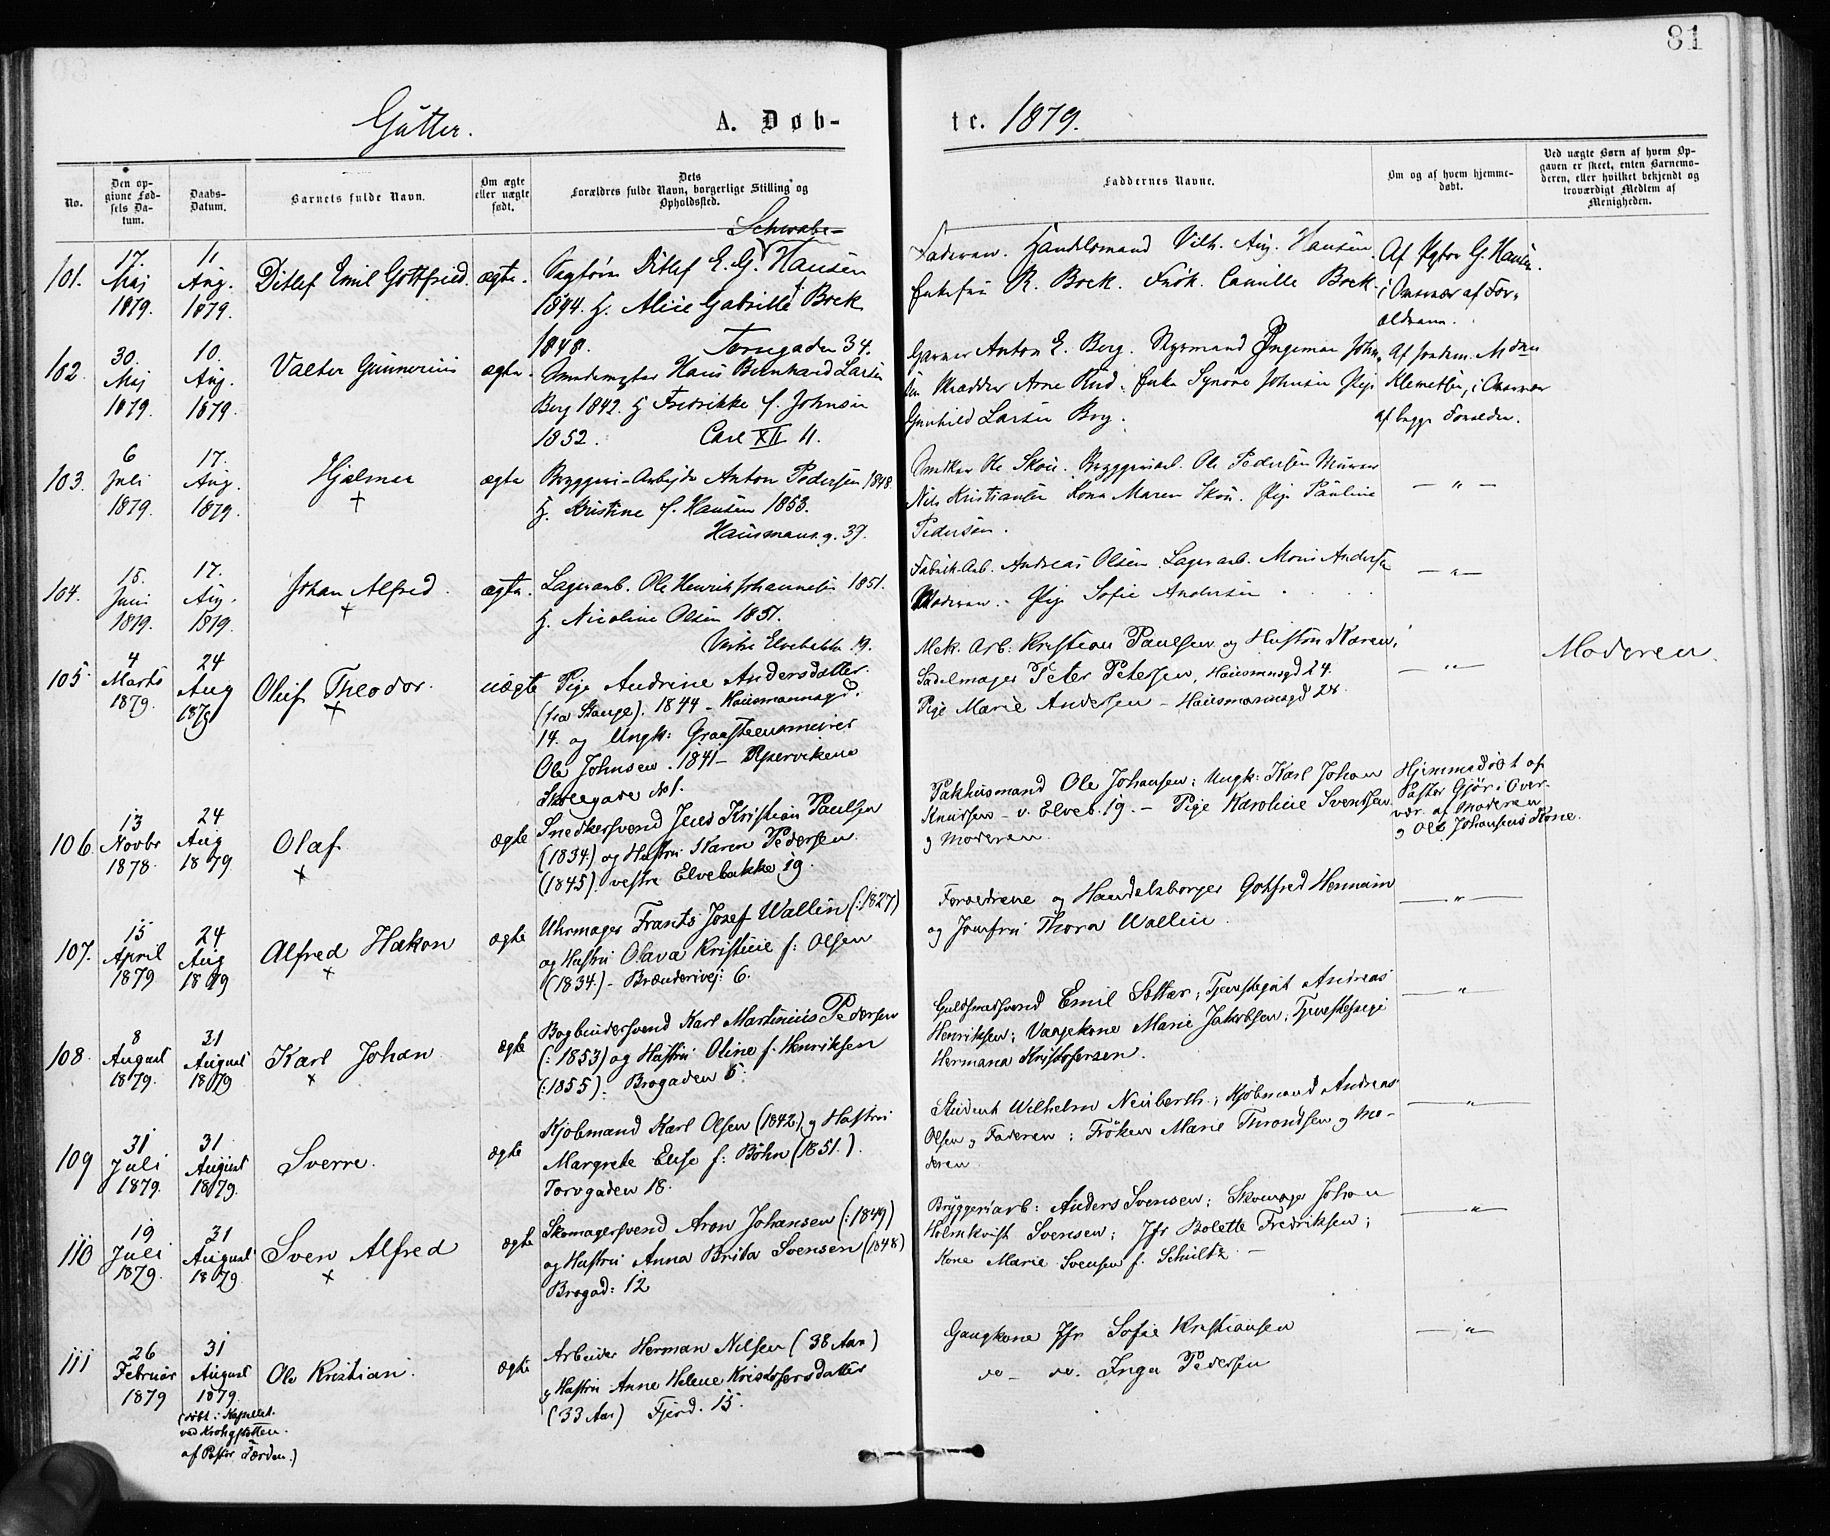 81
Gutter. A. Døb-
te. 1879.
No.
Den op-
givne Fød-
sels Da-
tum.
Daabs-
Datum.
Barnets fulde Navn.
Om ægte
eller uægte
født.
Dets
Forældres fulde Navn, borgerlige Stilling og
Opholdssted.
Faddernes Navne.
Om og af hvem hjemme-
døbt.
Ved uægte Børn af hvem Op-
gaven er skeet, enten Barnemo-
deren, eller hvilket bekjendt og
troværdigt Medlem af
Menigheden.
101.
17.
Maj
1879.
11
Aug.
1879.
Ditlef Emil Gottfried.
ægte.
Schwabe
Ditlef E. G. Hansen
1844. H. Alice Gabrielle Bock
1848. Torvgaden 34.
Faderen. Handelsmand Vilh. Aug. Hansen
Enkefru R. Bock. Frøk. Camille Bock.
Af Pastor G. Hansen.
i Overvær af For-
ældrene.
102.
30.
Maj
1879.
10.
Aug.
1879.
Valter Gunnerius
ægte
Hans Bernhard Larsen
Berg 1842. H. Fredrikke f. Johnsen
1852. Carl XII 11.
Garver Anton E. Berg. Styrmand Ingeman John-
sen Skrædder Arne Rud. Enke Synøve Johnsen Pige
Gunhild Larsen Berg.
Af Jordem.
Klemetsen, i Overvær
af begge Forældre.
103.
6
Juli
1879.
17.
Aug.
1879.
Hjalmar
+
ægte
Bryggeri-Arbejder Anton Pedersen 1848.
H. Kristine f. Hansen 1853.
Hausmans g. 37.
Snedker Ole Skou. Bryggeriarb. Ole Pedersen Murer
Nils Kristiansen Kone Maren Skou. Pige Pauline
Pedersen.
— " —
104.
15.
Juni
1879.
17.
Aug.
1879.
Johan Alfred.
+
ægte.
Lagerarb. Ole Henrik Johannesen 1851.
H. Nicoline Olsen 1851.
Vestre Elvebakke 19.
Fabrik-Arb. Andreas Olsen. Lagerarb. Mons Andersen
Moderen. - Pige Sofie Andersen
— " —
105.
4
Marts
1879.
24
Aug
1879
Oluf Theodor.
+
uægte
Pige Andrine Andersdatter
(fra Stange). 1844 - Hausmannsgd.
14. og Ungk: Graasteensmurer
Ole Johnsen. 1841 - Pipervikens
Skolegade No 1.
Mek. Arb: Kristian Paulsen og Hustru Karen,
Sadelmager Peter Petersen, Hausmnsgd 24.
Pige Marie Andersen - Hausmannsgd 24.
— " —
Moderen.
106.
13
Novbr
1878.
24
Aug
1879.
Olaf
+
ægte
Snedkersvend Jens Kristian Paulsen
(1834) og Hustru Karen Pedersen
(1845). vestre Elvebakke 19.
Pakhusmand Ole Johansen; Ungk: Karl Johan
Knudsen - v. Elveb. 19. - Pige Karoline Svendsen
og Moderen.
Hjemmedøbt af
Pastor Gjør i Over-
vær. af Moderen
og Ole Johansens Kone.
107.
15
April
1879
24
Aug
1879
Alfred Hakon
+
ægte
Uhrmager Frants Josef Wallin (:1827)
og Hustru Olava Kristine f: Olsen
(1834.) - Brænderivej: 6.
Forældrene og Handelsborger Gotfred Hermann
og Jomfru Thora Wallin.
— " —
108.
8
August
1879.
31
August
1879
Karl Johan
+
ægte
Bogbindersvend Karl Martinius Pedersen
(:1853) og Hustru Oline f. Henriksen
(:1855). Brogaden 5:
Guldsmedsvend Emil Sæther; Tjenestegut Andreas
Henriksen; Vaagekone Marie Jakobsen; Tjenestepige
Hermana Kristofersen.
— " —
109
31
Juli
1879.
31
August
1879.
Sverre.
ægte
Kjøbmand Karl Olsen (1842) og Hustru
Margrete Elise f: Böhn (1851.).
Torvgaden 18.
Student Wilhelm Neuberth; Kjøbmand Andreas
Olsen og Faderen; Frøken Marie Throndsen og Mo-
deren.
— " —
110
19
Juli
1879.
31
August
1879
Sven Alfred
+
ægte
Skomagersvend Aron Johansen (:1849)
og Hustru Anna Brita Svensen (1848)
Brogad: 12
Bryggeriarb: Anders Svensen; Skomager Johan
Holmkvist Svensen; Jfr Bolette Fredriksen;
Kone Marie Svensen f. Schultz. —
— " —
111
26
Februar
1879
31
August
1879.
(døbt i Kapellet
ved Krohgstøtten.
af Pastor Færden.)
Ole Kristian.
ægte
Arbeider Herman Nilsen (38 Aar)
og Hustru Anne Helene Kristofersdatter
(33 Aar) Fjerd. 15.
Gangkone Jfr Sofie Kristiansen
do - do. Inga Pedersen
— " —